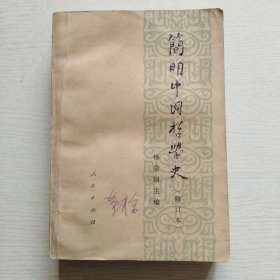 簡明中国哲學史
（修订本）
杨荣国主编
人民出版社